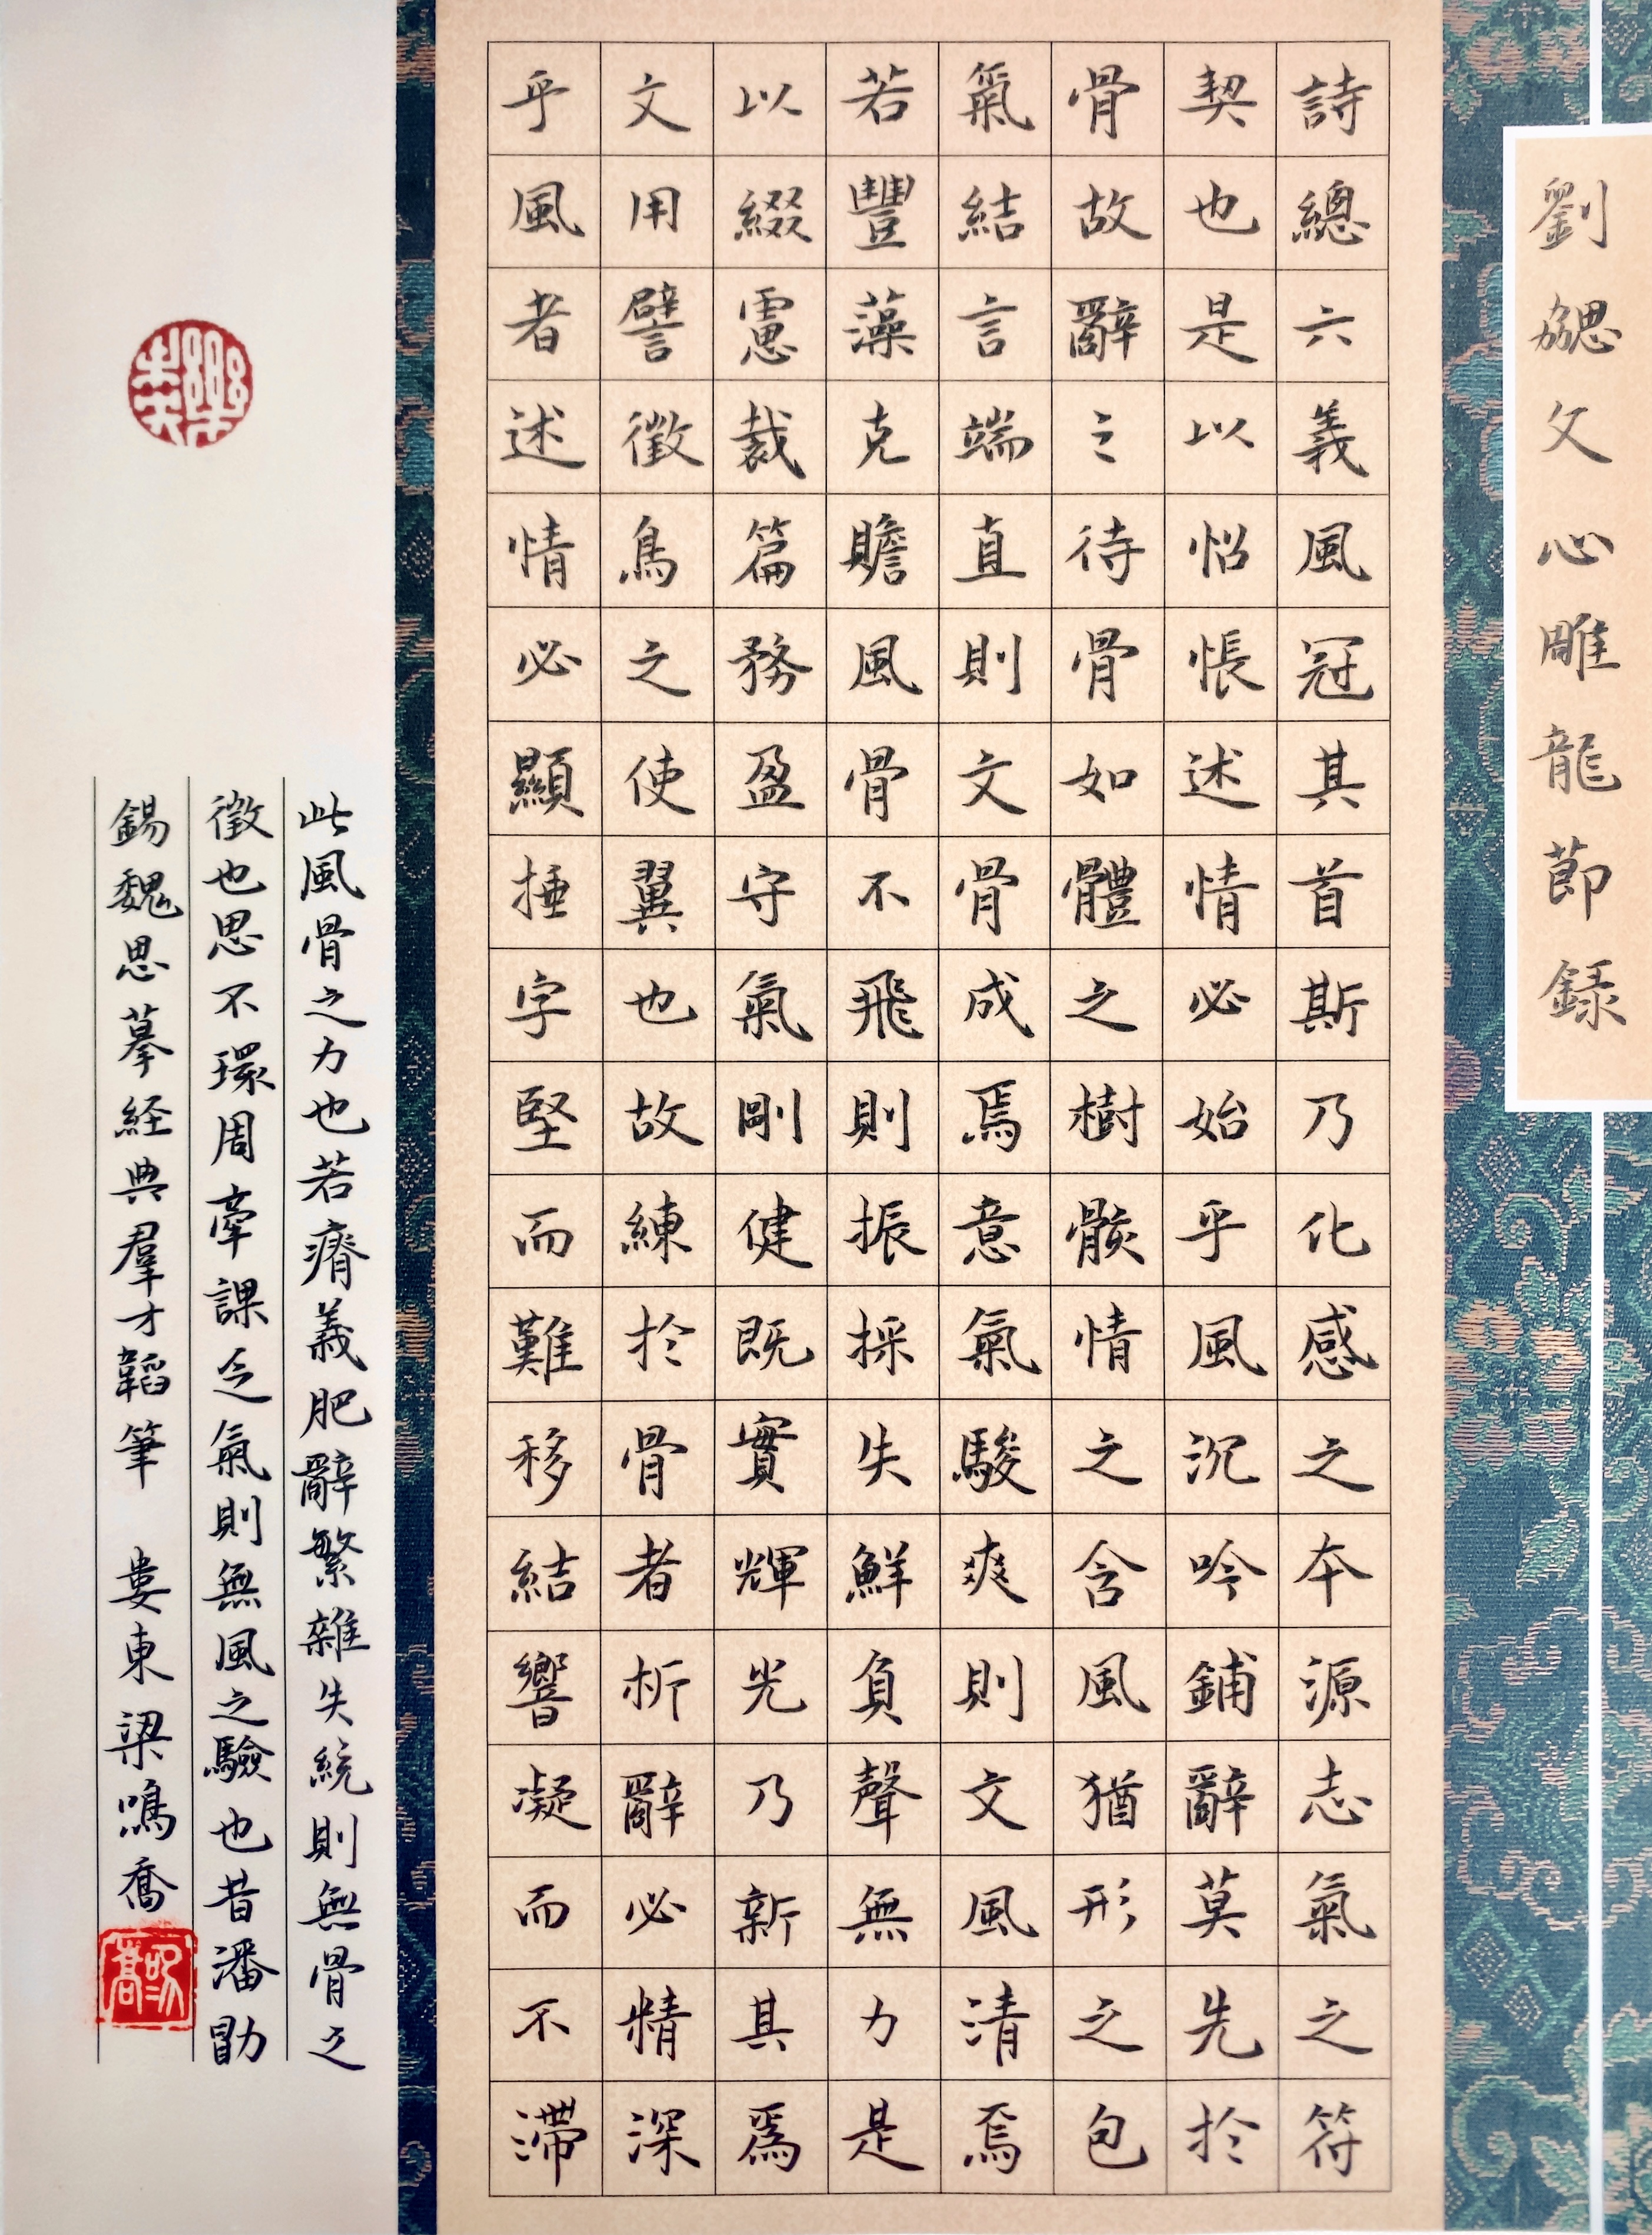 劉勰文心雕龍節録
詩總六義風冠其首斯乃化感之本源志氣之符
契也是以怊悵述情必始乎風沉吟鋪辭莫先於
骨故辭之待骨如體之樹骸情之含風猶形之包
氣結言端直則文骨成焉意氣駿爽則文風清焉
若豐藻克贍風骨不飛則振採失鮮負聲無力是
以綴慮裁篇務盈守氣剛健既實輝光乃新其爲
文用譬徵鳥之使翼也故練於骨者析辭必精深
乎風者述情必顯捶字堅而難移結響凝而不滯
此風骨之力也若瘠義肥辭繁雜失統則無骨之
徵也思不環周牽課乏氣則無風之驗也昔潘勖
錫魏思摹経典羣才韜筆 婁東梁鳴喬